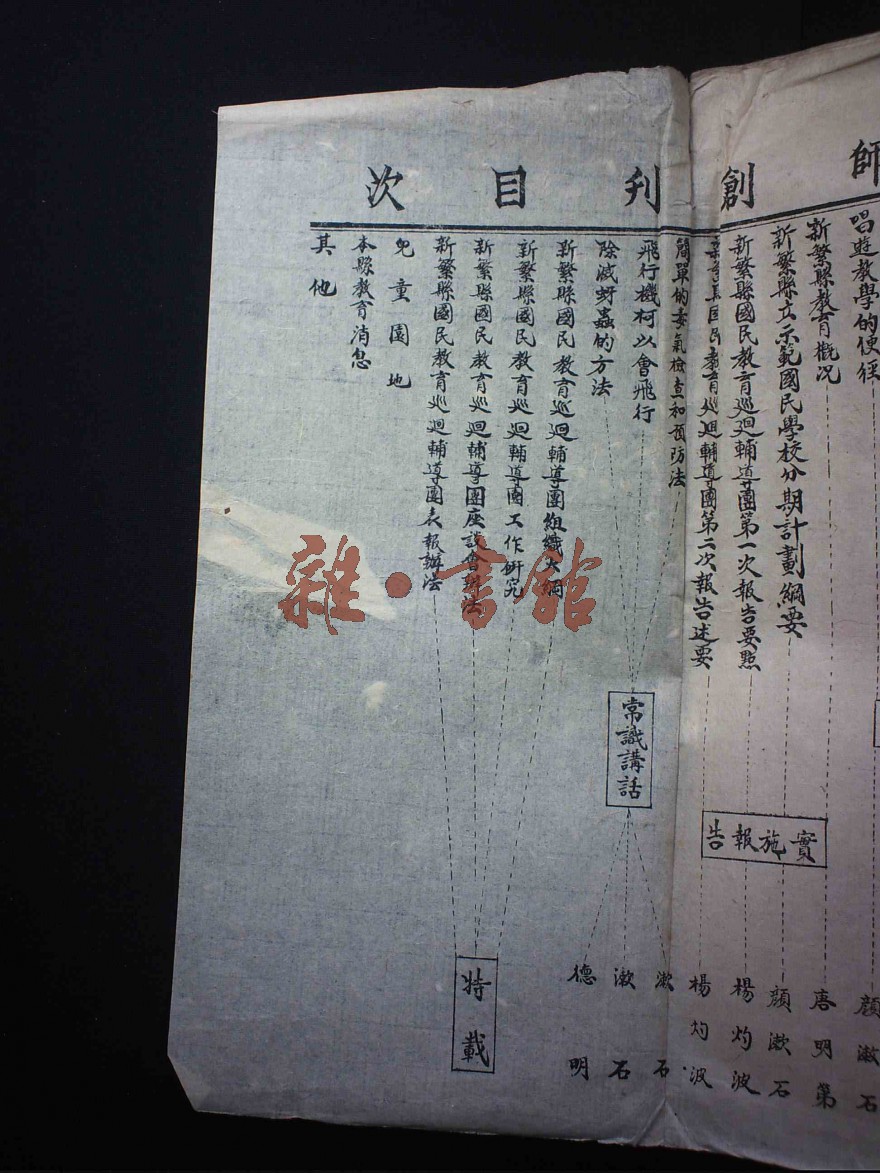 師創刊目次
唱遊教學的使徑
新繁縣教育概況
新繁縣立示範國民學校分期計劃綱要
新繁縣國民教育巡迴輔導團第一次報告要點
新繁縣國民教育巡迴輔導團第二次報告述要
簡單的毒氣檢查和預防法
飛行機柯以會飛行
除滅蚜蟲的方法
新繁縣國民教育巡迴輔導團組織大綱
新繁縣國民教育巡迴輔導團工作研究
新繁縣國民教育巡迴輔導團座談會辦法
新繁縣國民教育巡迴輔導團表報辦法
兒童園地
本縣教育消息
其他
實施報告
常識講話
特載
顏漱石
唐明第
顏漱石
楊灼波
楊灼波
漱石
漱石
德明
雜·書館